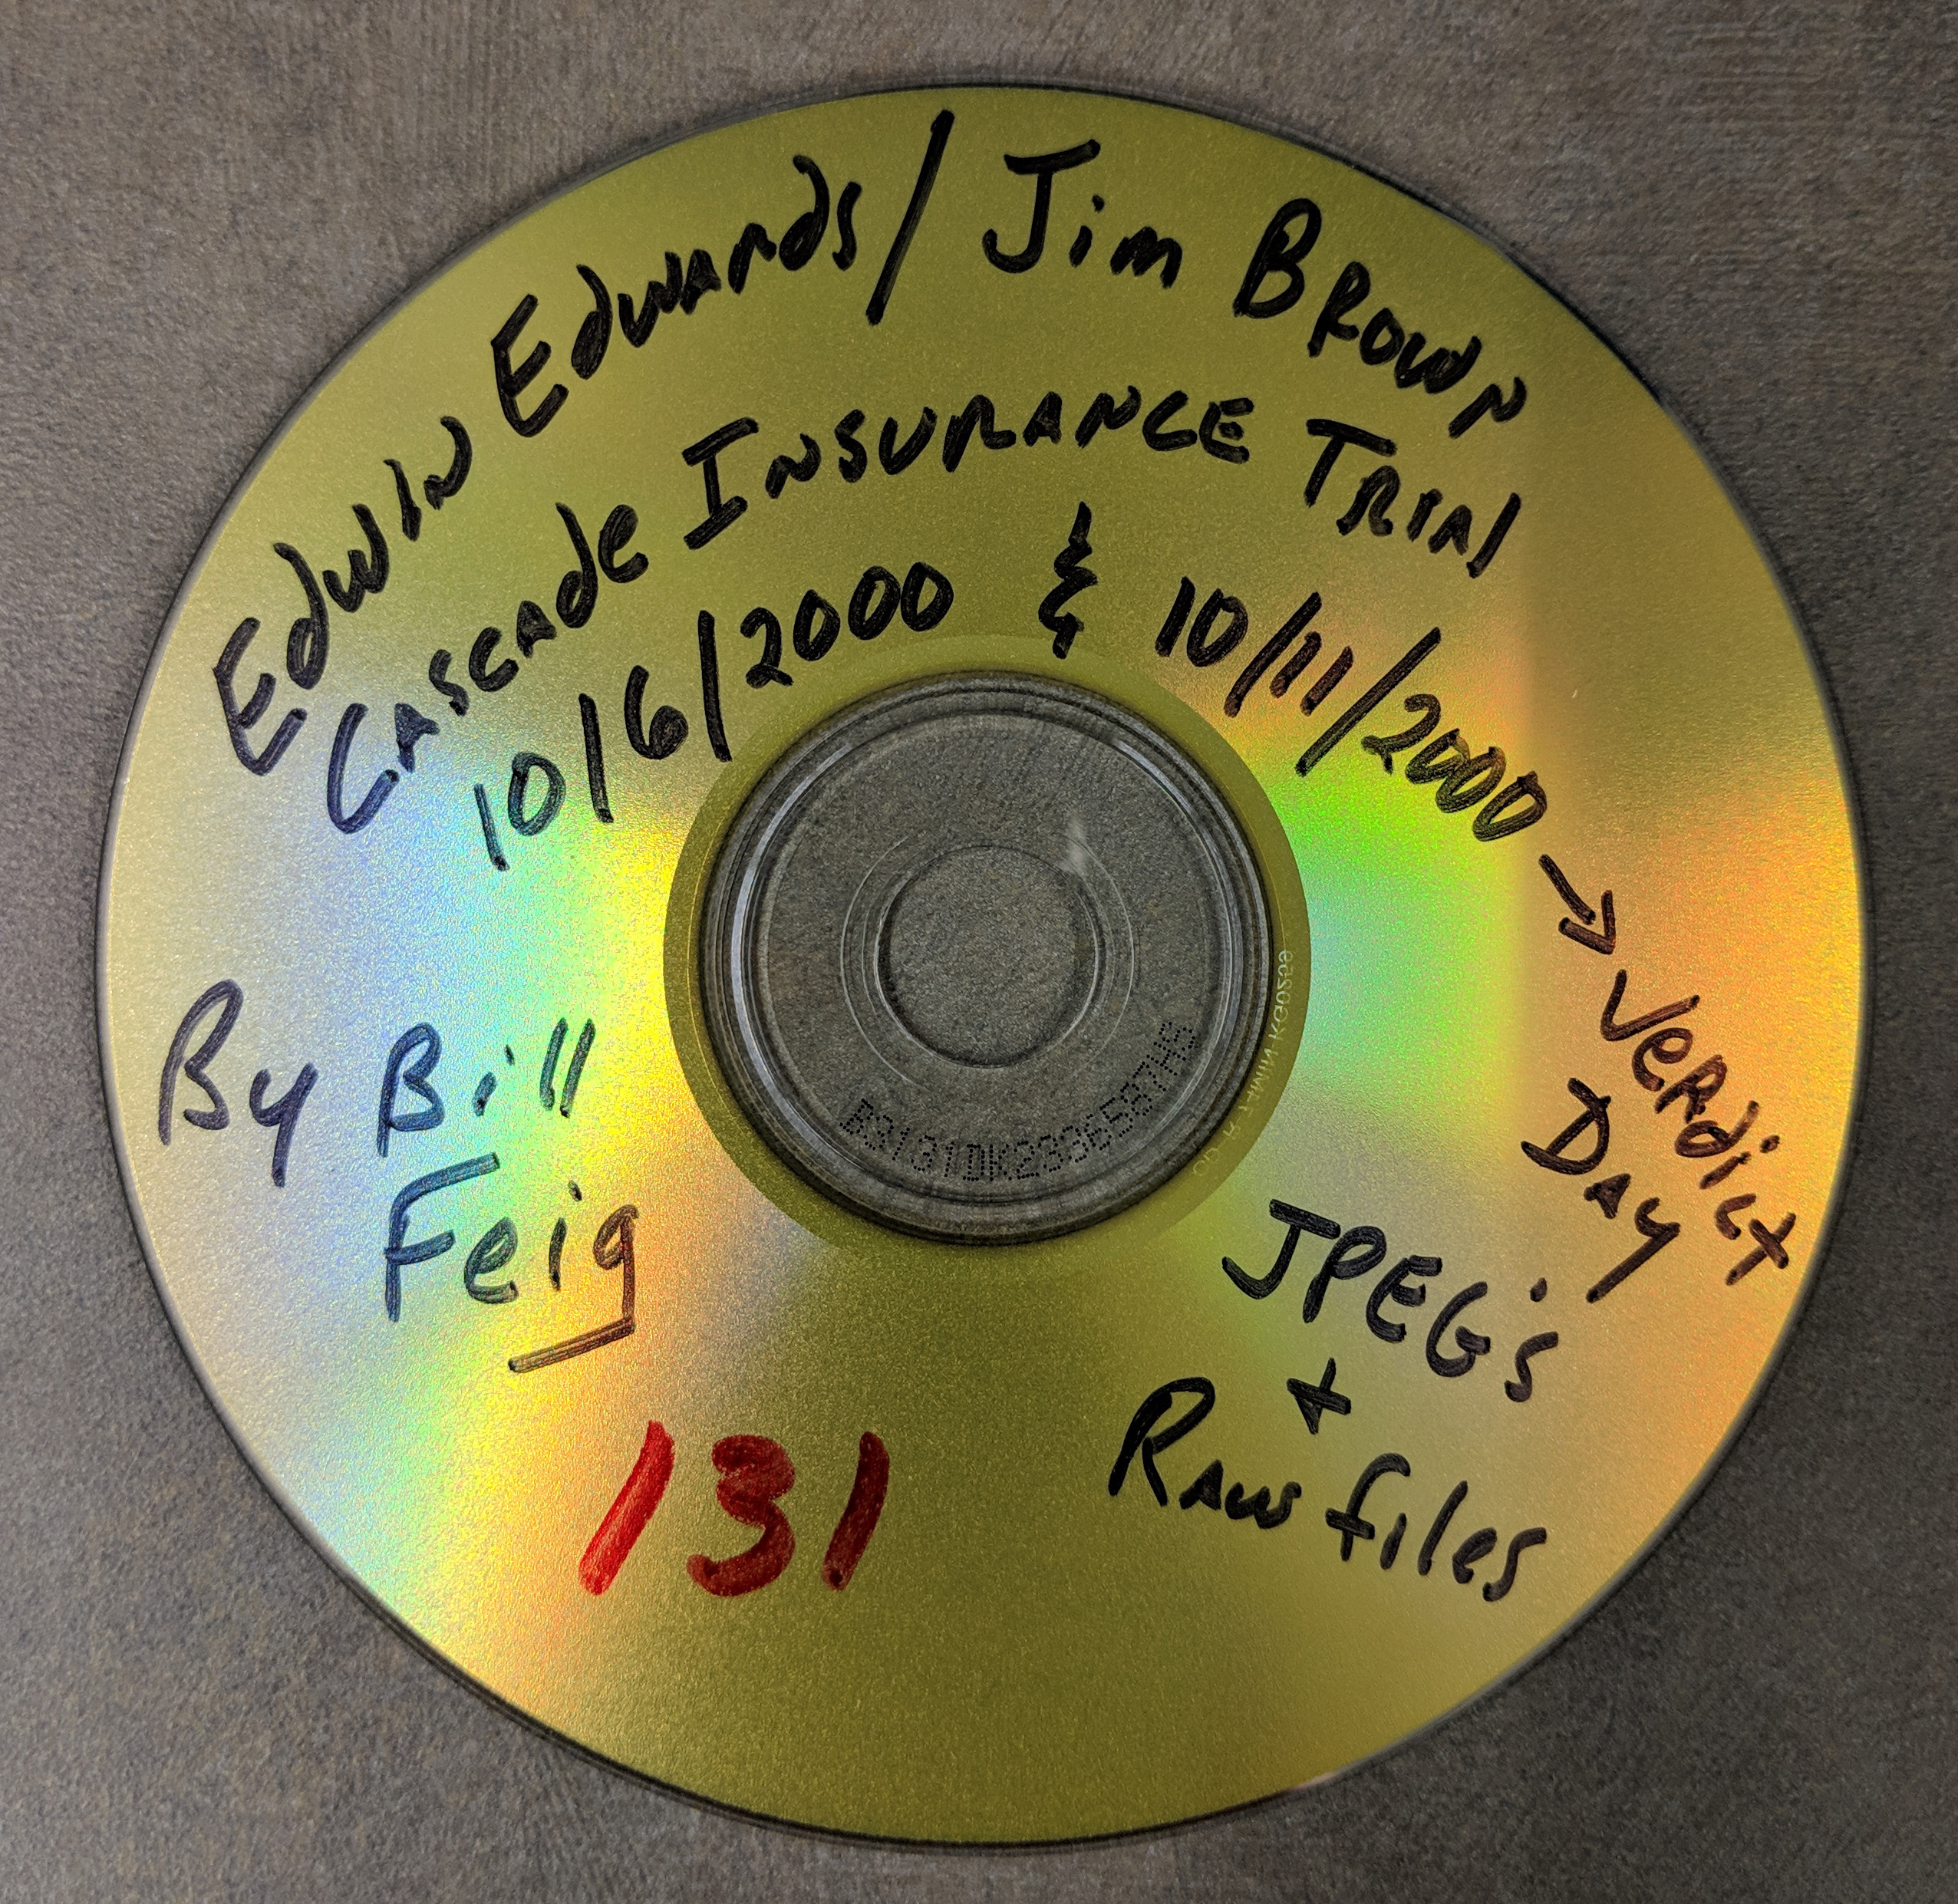 Edwin Edwards / Jim Brown
Cascade Insurance Trial
10/6/2000 & 10/11/2000 → Verdict
Day
By Bill
Feig
JPEG's
+
Raw files
131